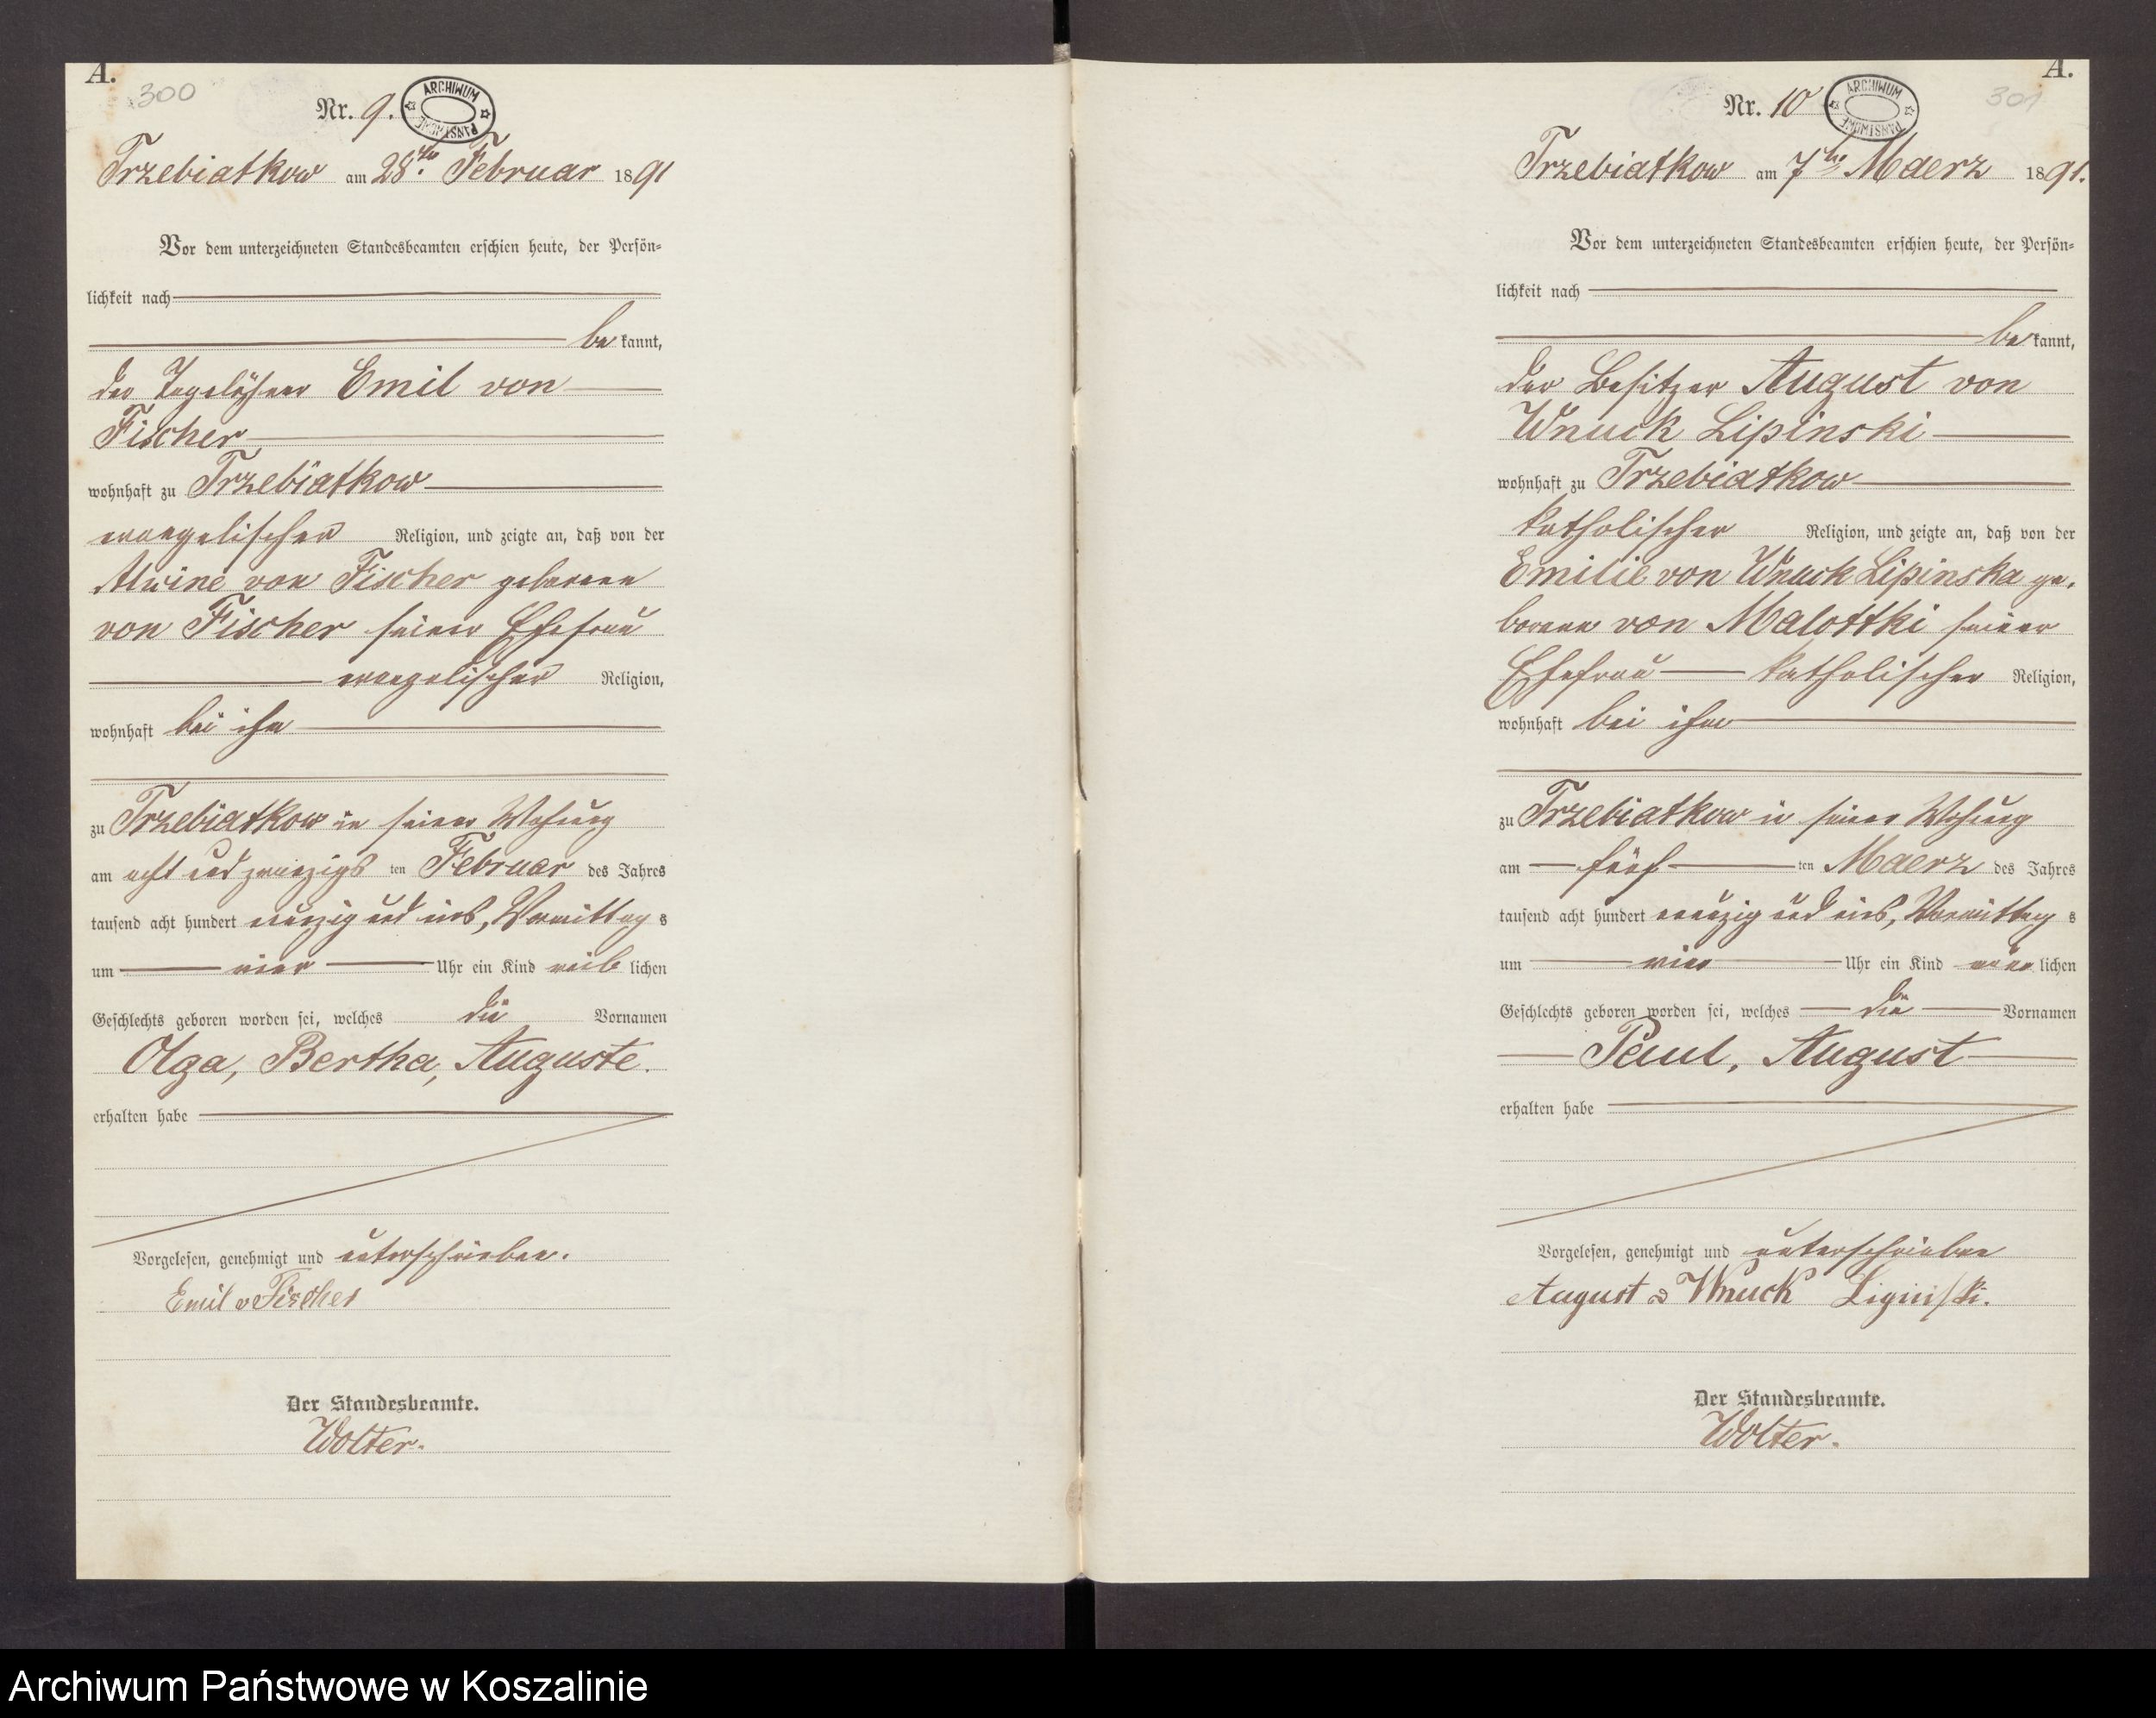 A.
300
Nr. 9.
ARCHIWUM PAŃSTWOWE
Trzebiatkow am 28ten Februar 1891
Vor dem unterzeichneten Standesbeamten erschien heute, der Persön-
lichkeit nach
be kannt,
der Tagelöhner Emil von
Fischer
wohnhaft zu Trzebiatkow
evangelischer Religion, und zeigte an, daß von der
Alwine von Fischer geborene
von Fischer seiner Ehefrau
evangelischer Religion,
wohnhaft bei ihm
zu Trzebiatkow in seiner Wohnung
am acht und zwanzigs ten Februar des Jahres
tausend acht hundert neunzig und eins, Vormittag s
um vier Uhr ein Kind weib lichen
Geschlechts geboren worden sei, welches die Vornamen
Olga, Bertha, Auguste.
erhalten habe
Vorgelesen, genehmigt und unterschrieben.
Emil v Fischer
Der Standesbeamte.
Wolter.
A.
301
Nr. 10
ARCHIWUM PAŃSTWOWE
Trzebiatkow am 7ten Maerz 1891.
Vor dem unterzeichneten Standesbeamten erschien heute, der Persön-
lichkeit nach
be kannt,
der Besitzer August von
Wnuck Lipinski
wohnhaft zu Trzebiatkow
katholischer Religion, und zeigte an, daß von der
Emilie von Wnuck Lipinska ge-
borene von Malottki seiner
Ehefrau katholischer Religion,
wohnhaft bei ihm
zu Trzebiatkow in seiner Wohnung
am fünf ten Maerz des Jahres
tausend acht hundert neunzig und eins, Vormittag s
um vier Uhr ein Kind männ lichen
Geschlechts geboren worden sei, welches die Vornamen
Paul, August
erhalten habe
Vorgelesen, genehmigt und unterschrieben
August v Wnuck Lipinski.
Der Standesbeamte.
Wolter.
Archiwum Państwowe w Koszalinie